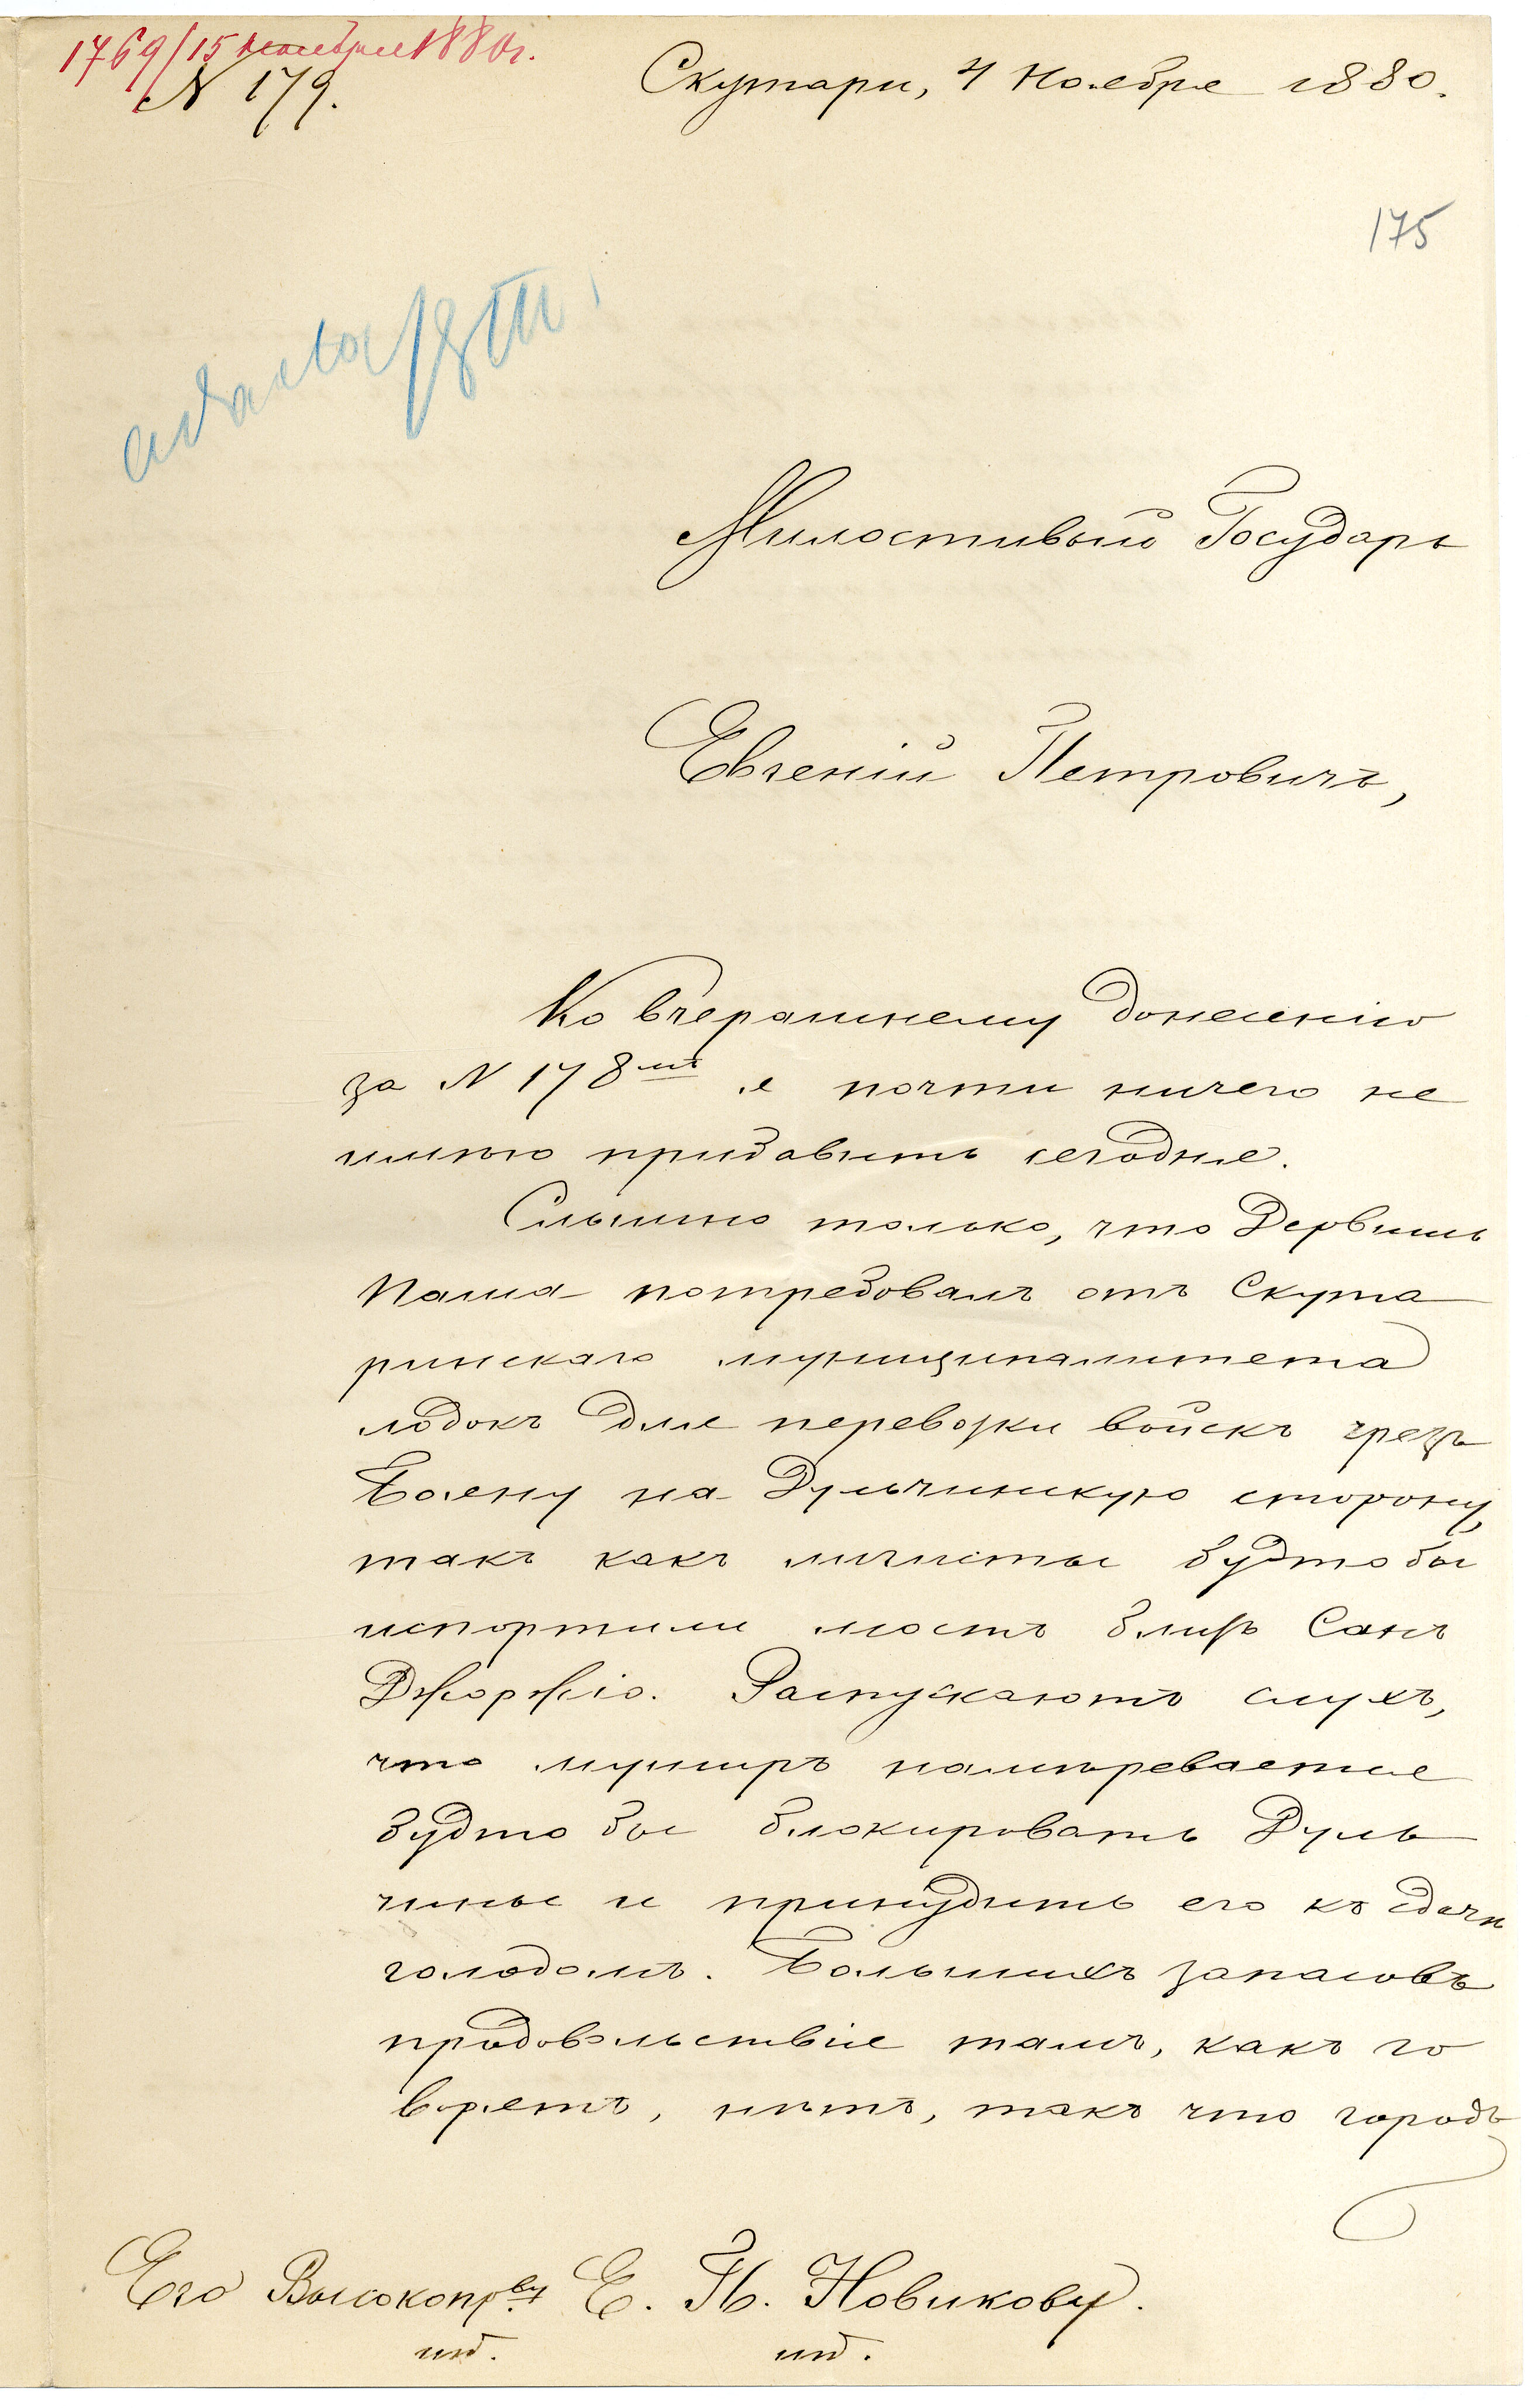 1769/15 ноября 1880 г.
N 179.
Скутари, 4 Ноября 1880.
175
Милостивый Государь
Евгеній Петровичъ,
Ко вчерашнему донесенію
за N 178мъ я почти ничего не
имѣю прибавить сегодня.
Слышно только, что Дервишъ
Паша потребовалъ отъ Скута
ринскаго муниципалитета
лодокъ для перевозки войскъ чрезъ
Бояну на Дульчинскую сторону,
такъ какъ лигисты будто бы
испортили мостъ близь Санъ
Джоржіо. Распускаютъ слухъ,
что муширъ намѣревается
будто бы блокировать Дуль
чинье и принудить его къ сдачѣ
голодомъ. Большихъ запасовъ
продовольствія тамъ, какъ го
ворятъ, нѣтъ, такъ что городъ
Его Высокопрву Е. П. Новикову.
ид. ид.